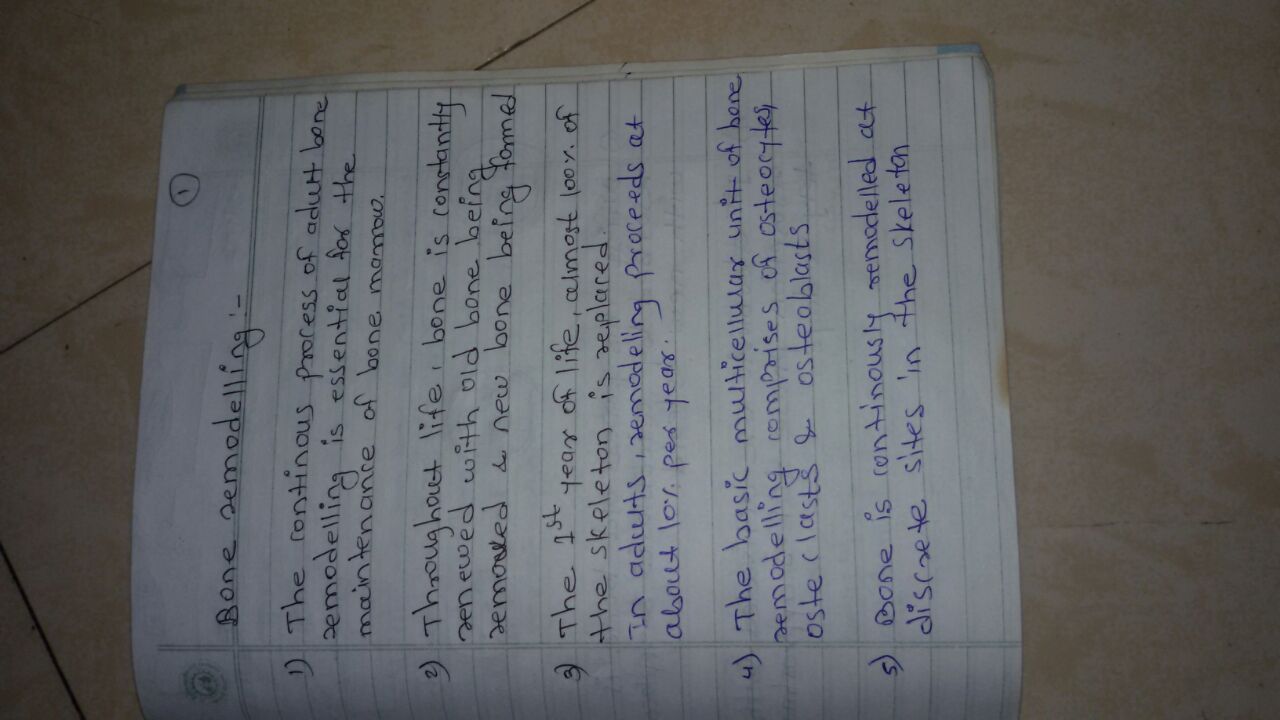 1
Bone remodelling :-
1) The continous process of adult bone
remodelling is essential for the
maintenance of bone marrow.
2) Throughout life, bone is constantly
renewed with old bone being
removed & new bone being formed
3) The 1st year of life, almost 100% of
the skeleton is replaced.
In adults, remodeling proceeds at
about 10% per year.
4) The basic multicellular unit of bone
remodelling comprises of osteocytes,
osteclasts & osteoblasts
5) Bone is continously remodelled at
discrete sites in the skeleton